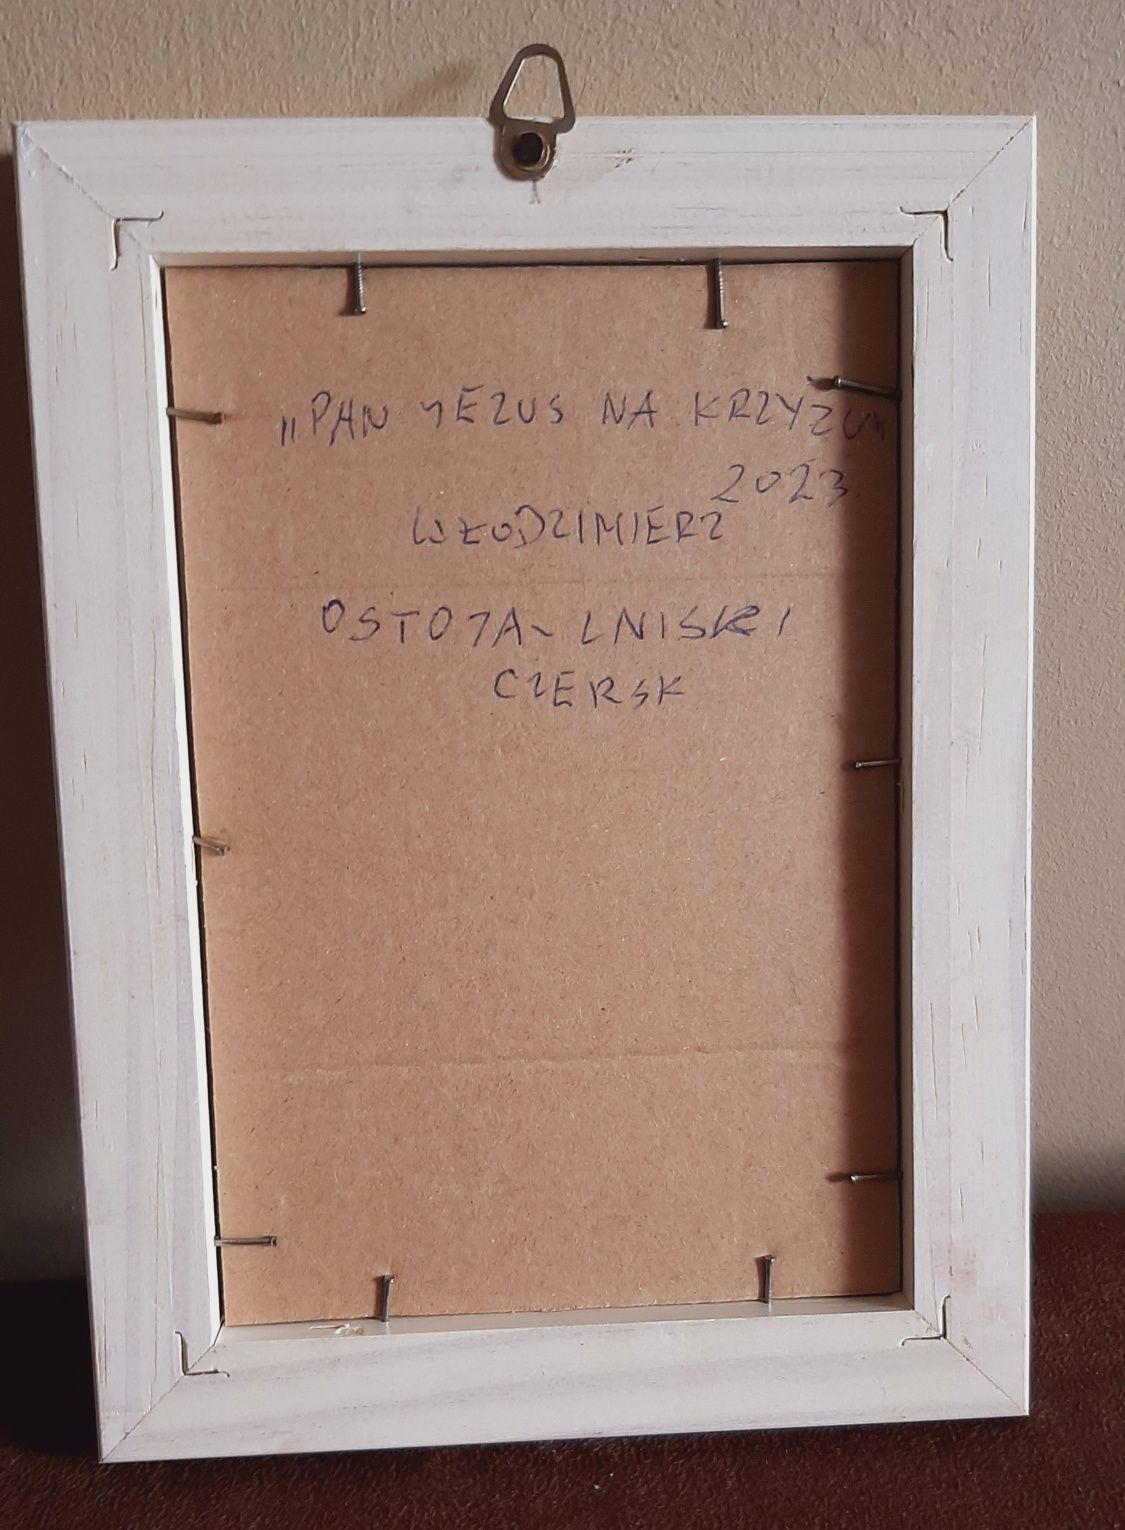 „PAN JEZUS NA KRZYŻU"
2023
WŁODZIMIERZ
OSTOJA-LNISKI
CZERSK